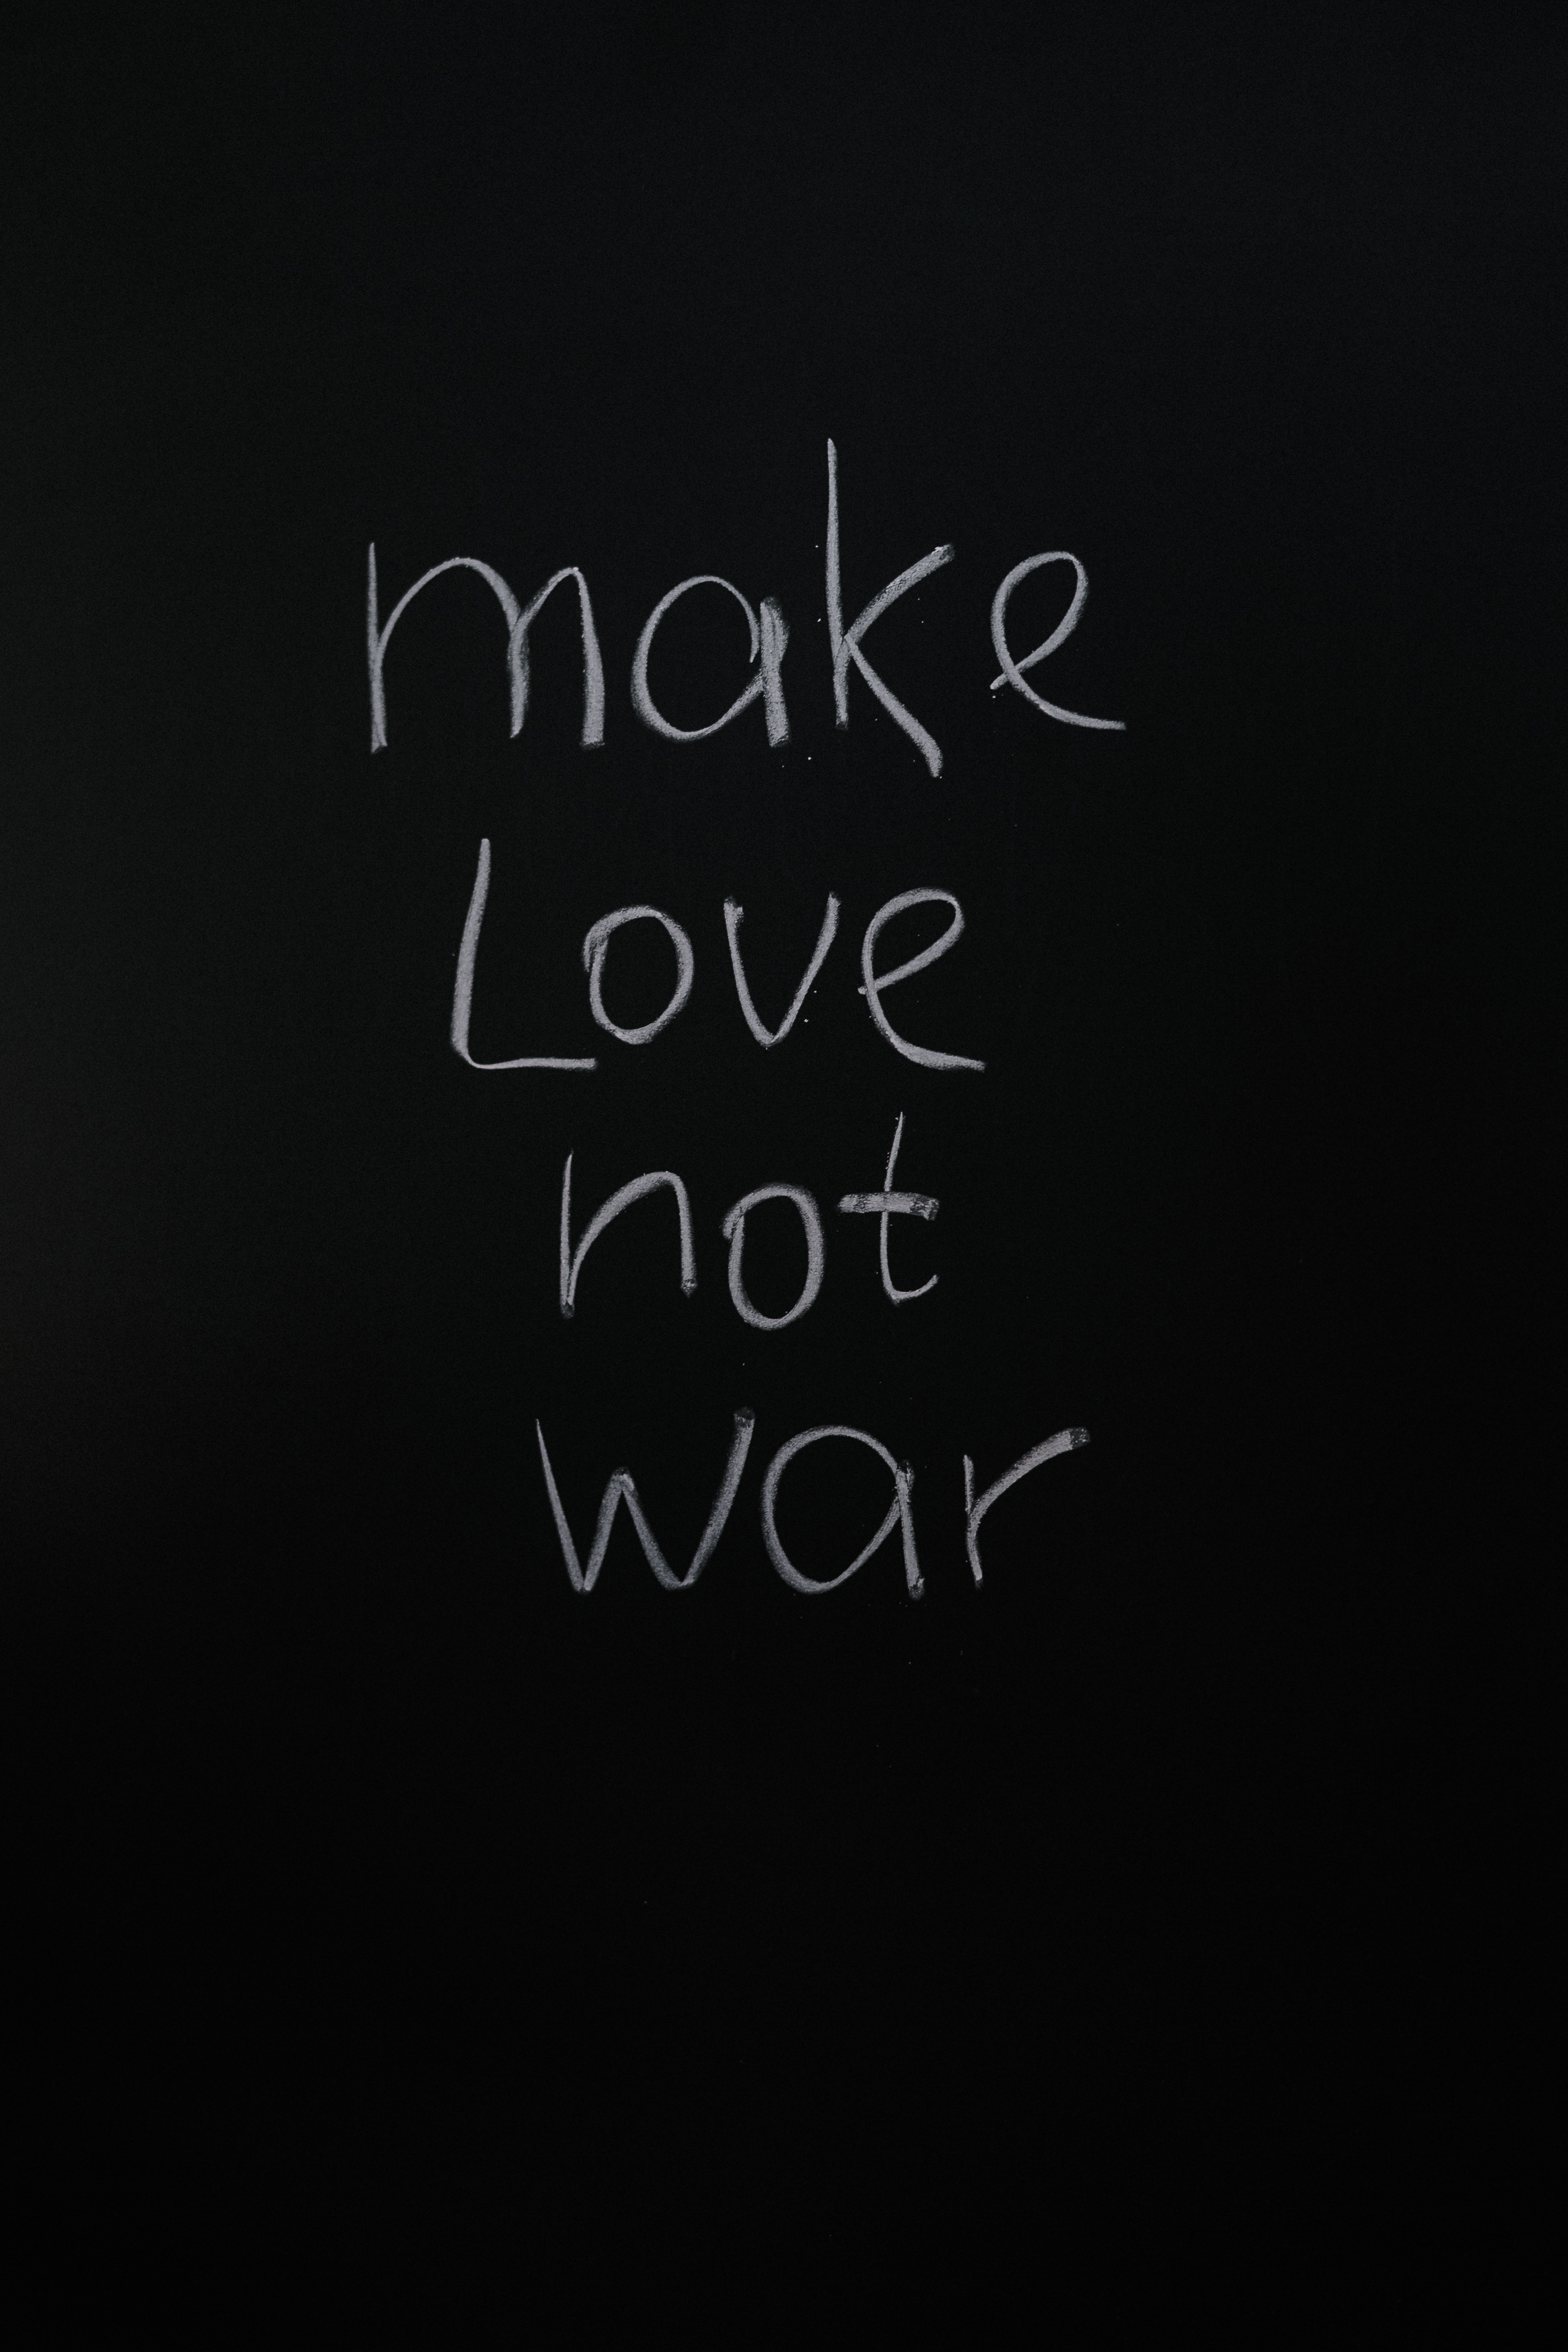 make
Love
not
war